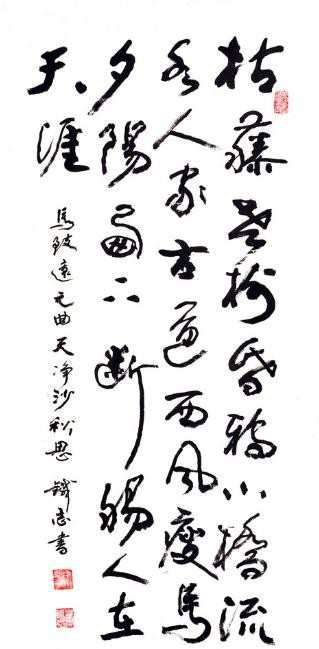 枯藤老树昏鸦小橋流
水人家古道西風瘦馬
夕陽西下斷腸人在
天涯
馬致遠元曲天净沙秋思 志書